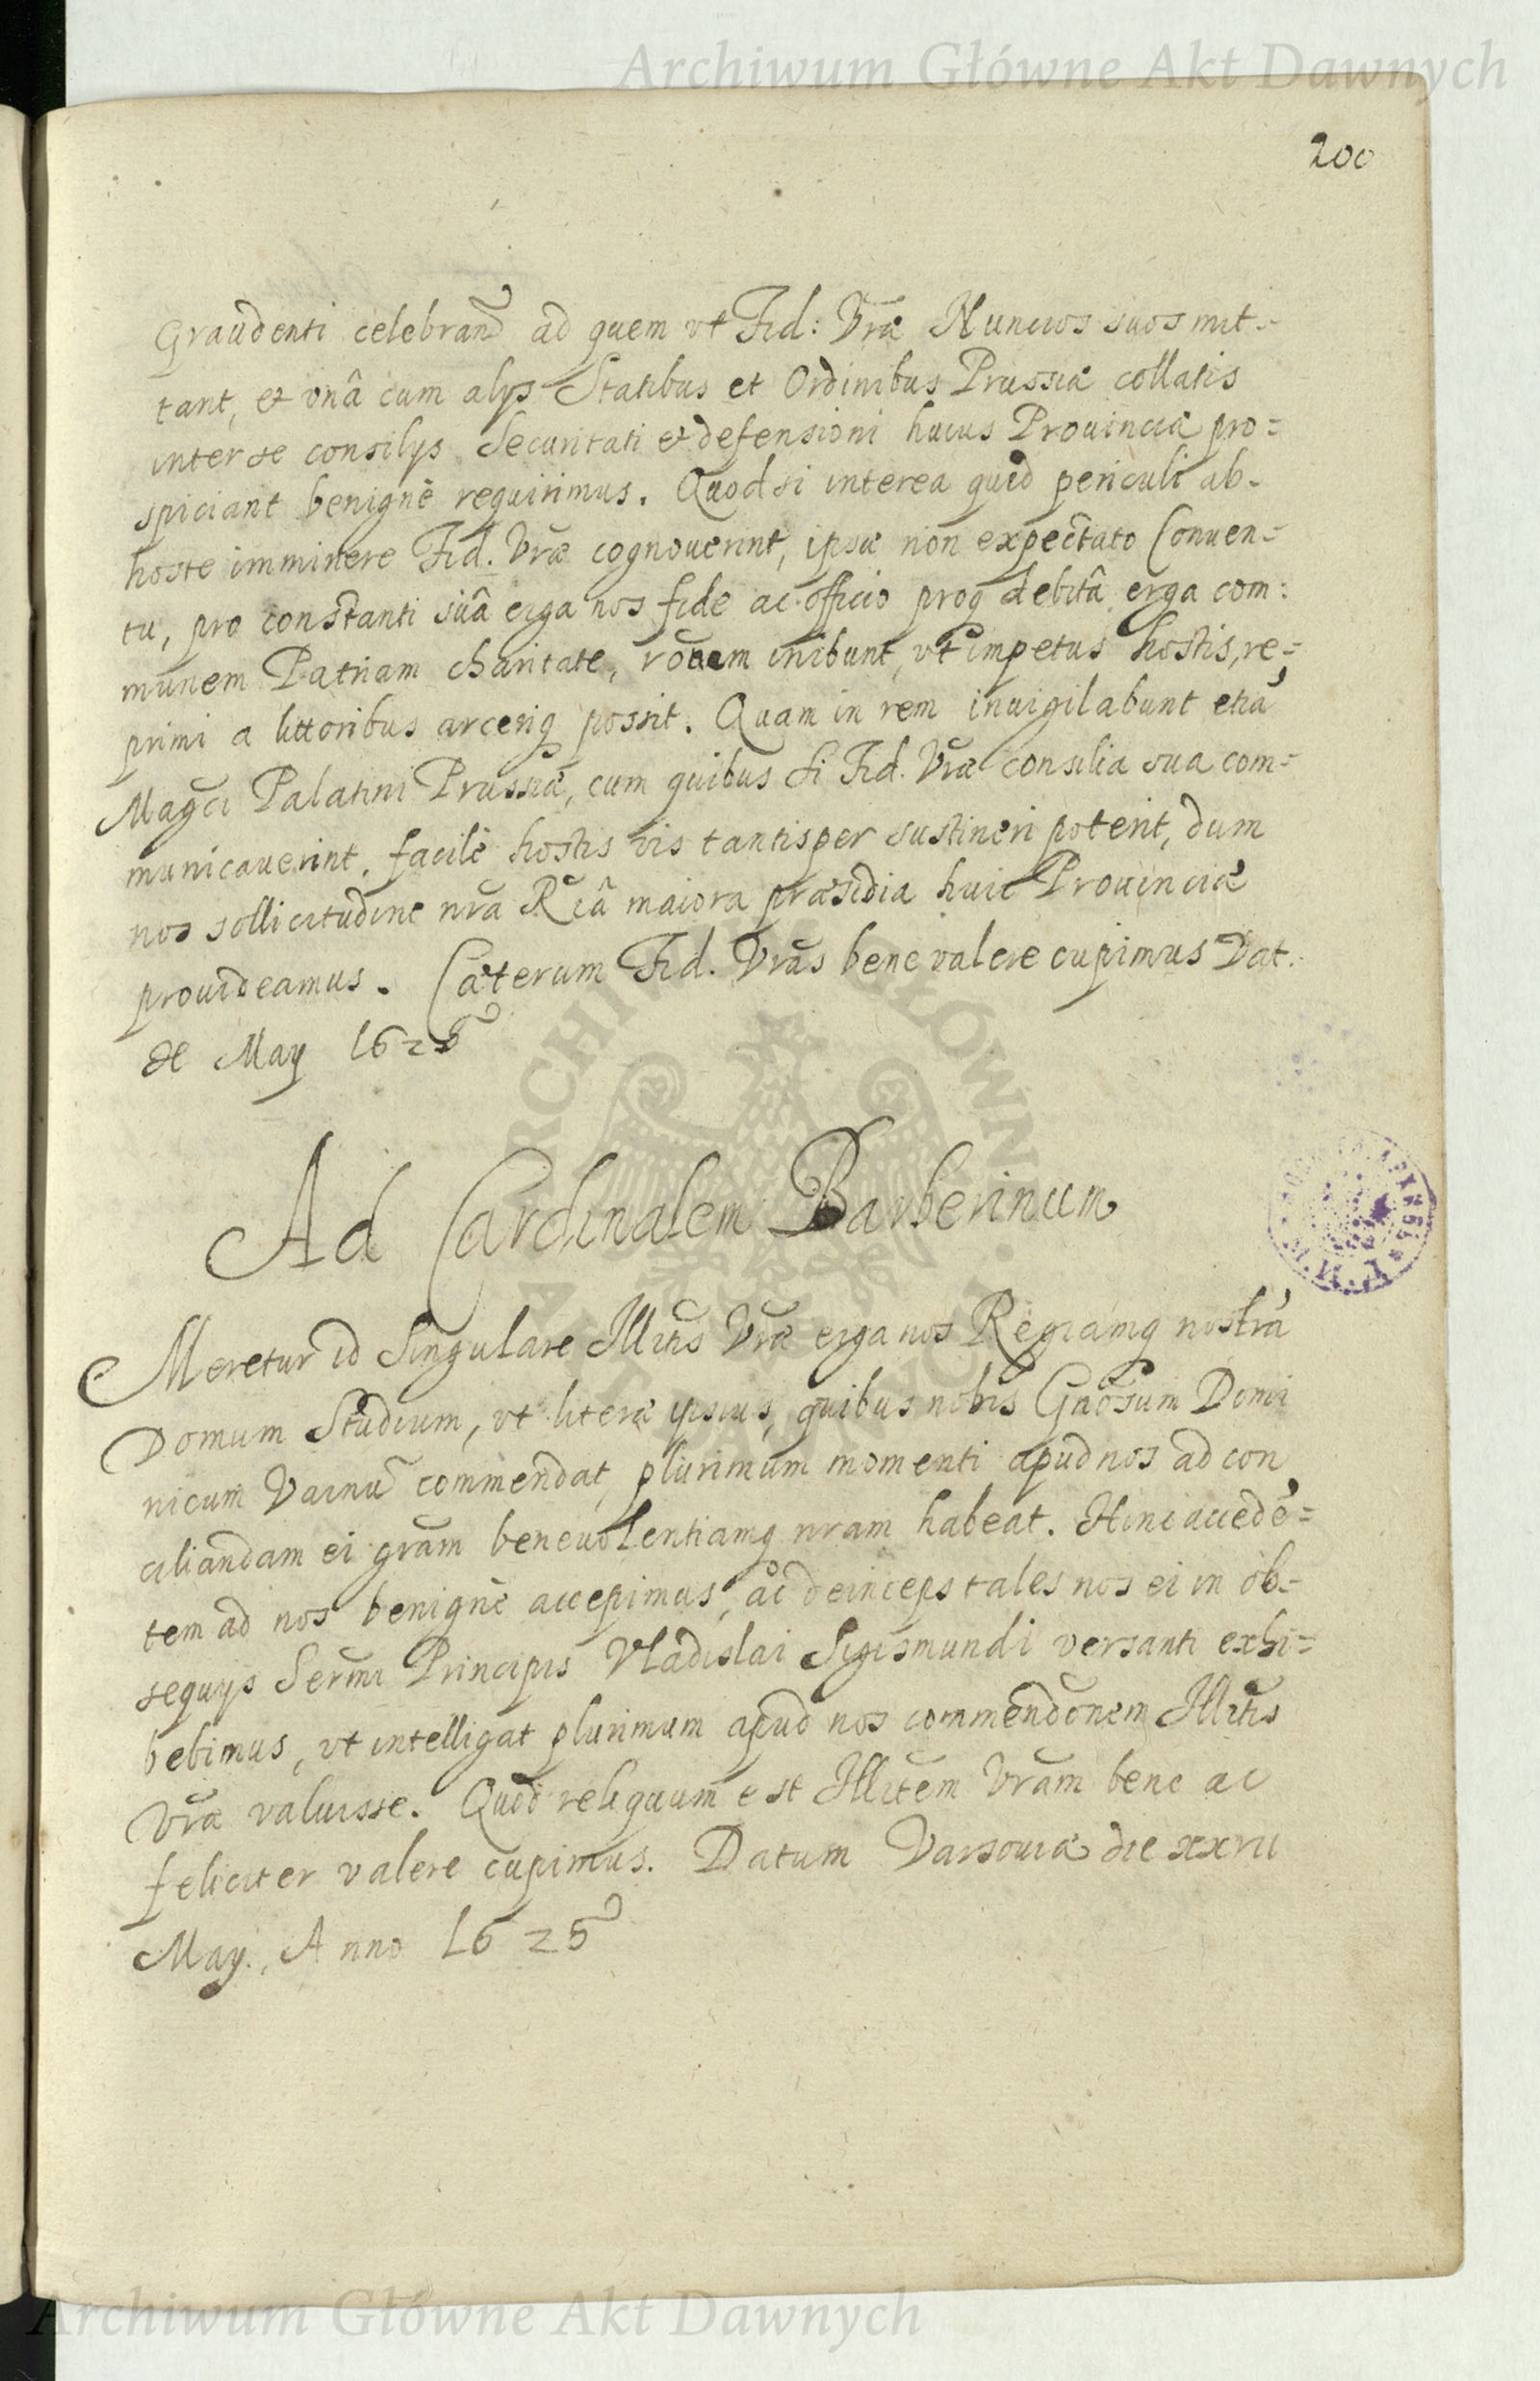 Archiwum Główne Akt Dawnych
200
Graudenti celebrand ad quem vt Fid: Vrae Nuncios suos mit-
tant, et vnâ cum alys Statibus et Ordinibus Prussiae collatis
inter se consilys Securitati et defensioni huius Prouinciae pro=
spiciant benignè requirimus. Quod si interea quid periculi ab-
hoste imminere Fid. Vrae cognouerint, ipsae non expectato Conuen=
tu, pro constanti suâ erga nos fide ac officio proq debitâ erga com:
munem Patriam charitate, rõem inibunt, vt impetus hostis, re=
primi a littoribus arceriq possit. Quam in rem inuigilabunt etiã
Magci Palatini Prussiae, cum quibus si Fid. Vrae consilia sua com=
municauerint, facilè hostis vis tantisper sustineri poterit, dum
nos sollicitudine nrã Rciâ maiora praesidia huic Prouinciae
prouideamus. Caeterum Fid. Vrãs bene valere cupimus Dat.
de May 1625
Ad Cardinalem Barberinum
Meretur id Singulare Illrtis Vrae erga nos Regiamq nostrã
Domum Studium, vt literae ipsius, quibus nobis Gnõsum Domi
nicum commendat, plurimum momenti apud nos ad con
ciliandam ei grãm beneuolentiamq nram habeat. Hinc accedẽ=
tem ad nos benignè accepimus, ac deinceps tales nos ei in ob-
sequys Sermi Principis Vladislai Sigismundi versanti exhi=
bebimus, vt intelligat plurimum apud nos commendõnem Illrtis
Vrae valuisse. Quod reliquum est Illrtem Vrãm bene ac
feliciter valere cupimus. Datum Varsouiae die
May. Anno 1625
Archiwum Główne Akt Dawnych